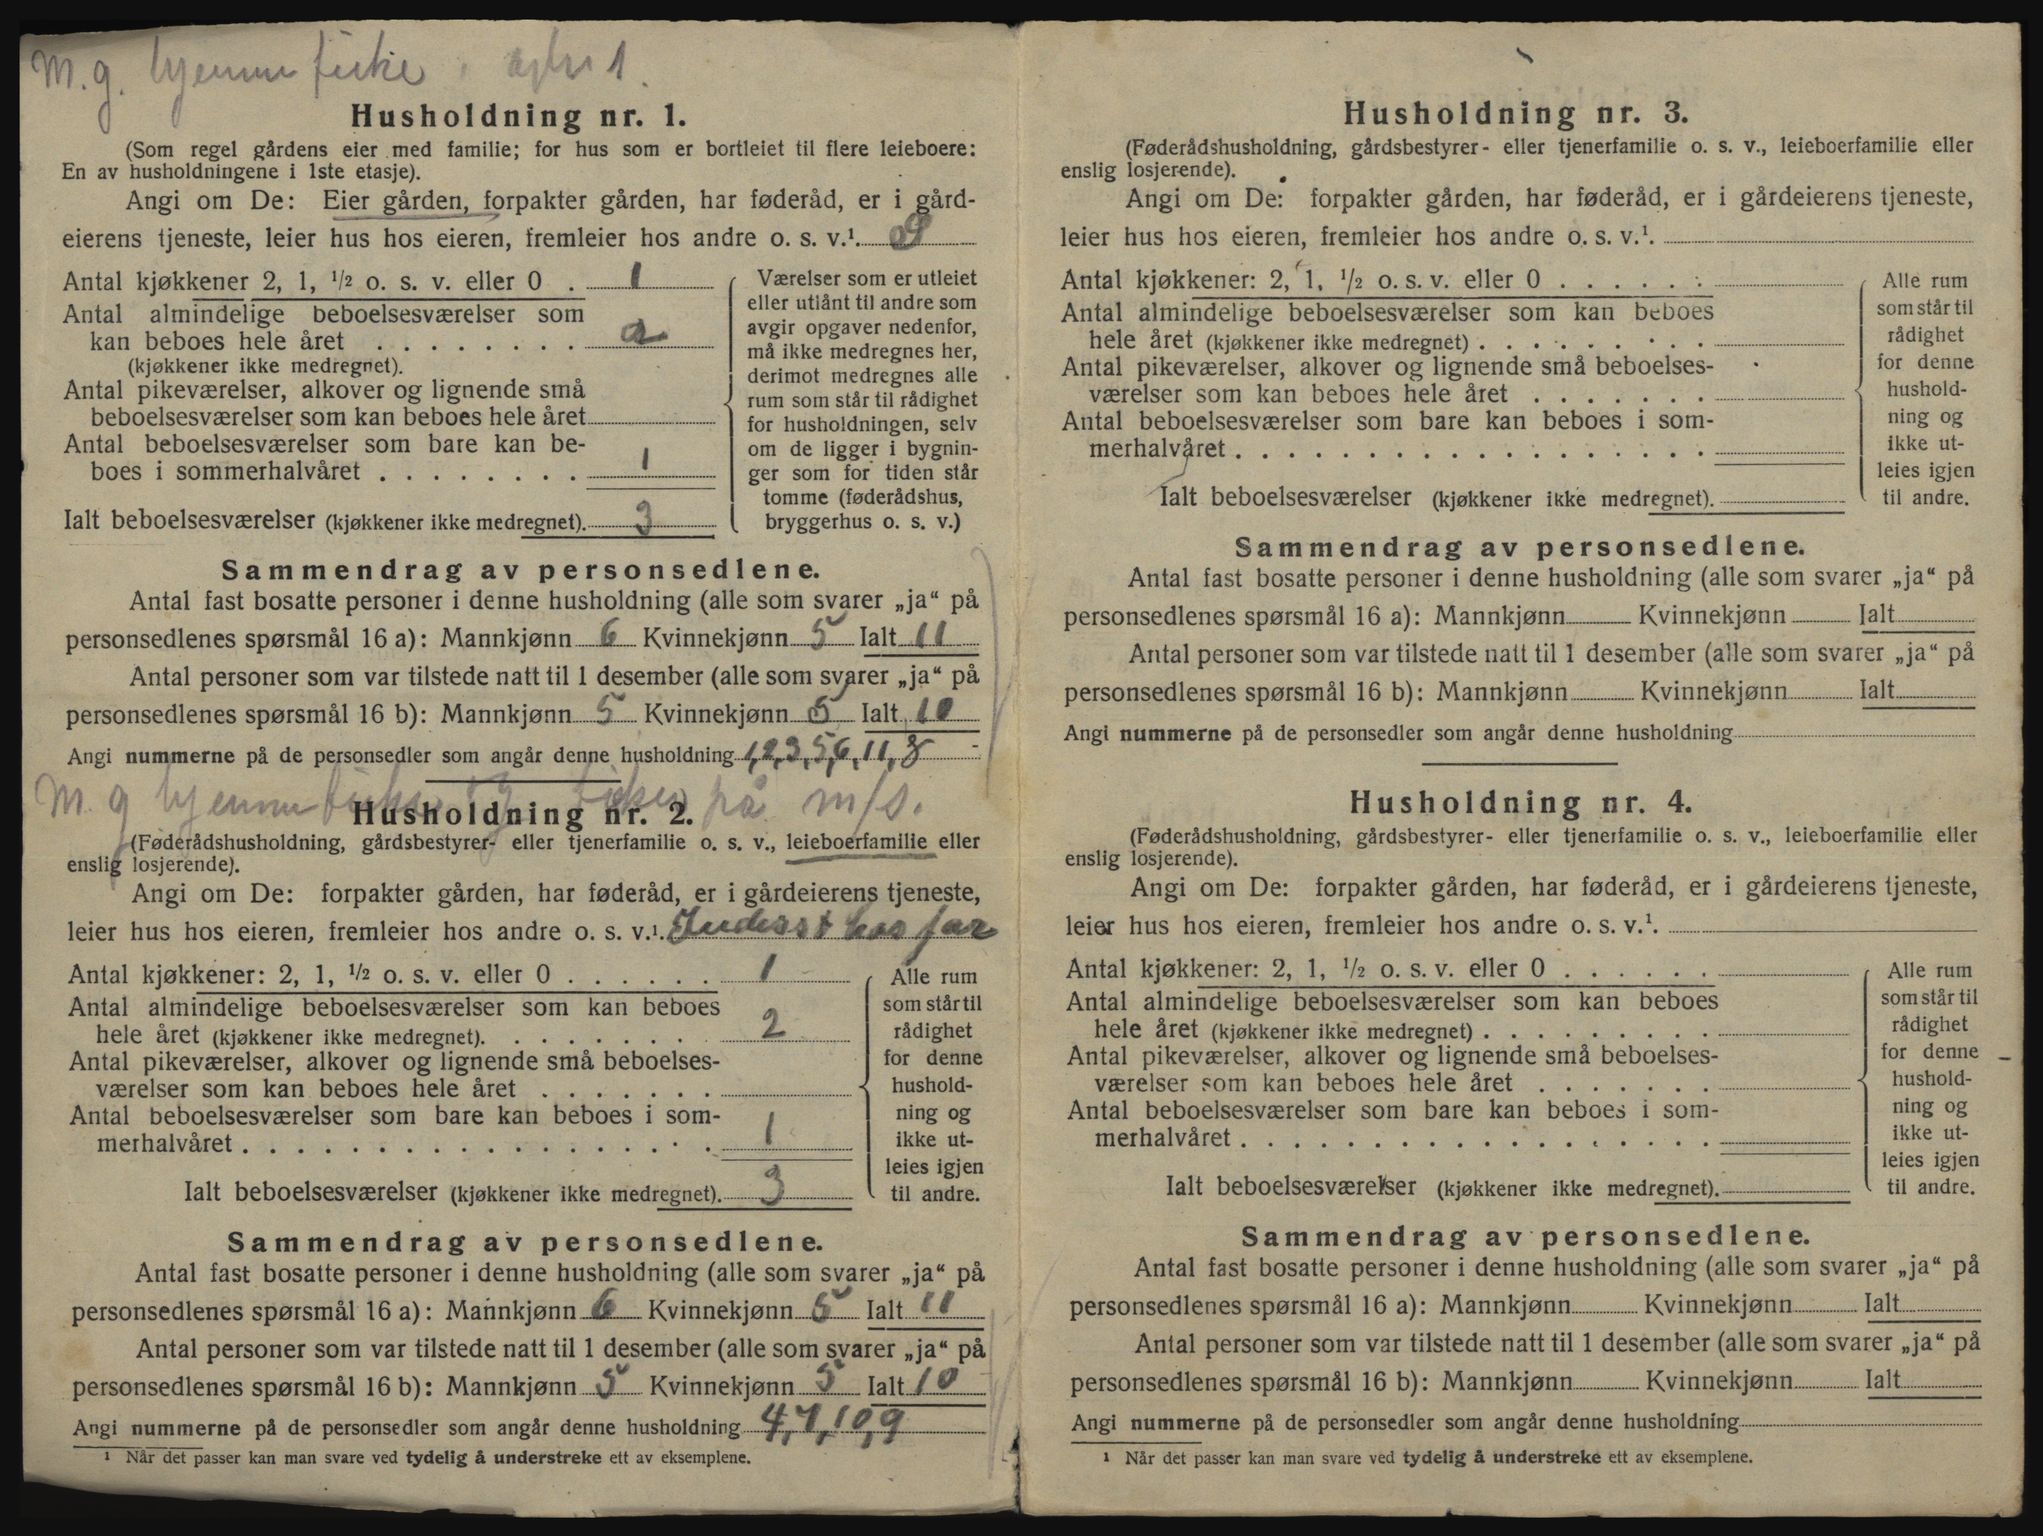 M. g. hjemmefiske
Husholdning nr. 1.
(Som regel gårdens eier med familie; for hus som er bortleiet til flere leieboere:
En av husholdningene i 1ste etasje).
Angi om De: Eier gården, forpakter gården, har føderåd, er i gård-
eierens tjeneste, leier hus hos eieren, fremleier hos andre o. s. v.¹.
Antal kjøkkener 2, 1, ½ o. s. v. eller 0 . 1
Antal almindelige beboelsesværelser som
kan beboes hele året . . . . . . . . 2
(kjøkkener ikke medregnet).
Antal pikeværelser, alkover og lignende små
beboelsesværelser som kan beboes hele året
Antal beboelsesværelser som bare kan be-
boes i sommerhalvåret . . . . . . . . 1
Ialt beboelsesværelser (kjøkkener ikke medregnet). 3
Værelser som er utleiet
eller utlånt til andre som
avgir opgaver nedenfor,
må ikke medregnes her,
derimot medregnes alle
rum som står til rådighet
for husholdningen, selv
om de ligger i bygnin-
ger som for tiden står
tomme (føderådshus,
bryggerhus o. s. v.)
Sammendrag av personsedlene.
Antal fast bosatte personer i denne husholdning (alle som svarer „ja“ på
personsedlenes spørsmål 16 a): Mannkjønn 6 Kvinnekjønn 5 Ialt 11
Antal personer som var tilstede natt til 1 desember (alle som svarer „ja“ på
personsedlenes spørsmål 16 b): Mannkjønn 5 Kvinnekjønn 5 Ialt 10
Angi nummerne på de personsedler som angår denne husholdning 1,2,3,5,6,11,8
M. g hjemmefiske og fisker på m/s.
Husholdning nr. 2.
(Føderådshusholdning, gårdsbestyrer- eller tjenerfamilie o. s. v., leieboerfamilie eller
enslig losjerende).
Angi om De: forpakter gården, har føderåd, er i gårdeierens tjeneste,
leier hus hos eieren, fremleier hos andre o. s. v.¹. Inderst hos far
Antal kjøkkener: 2, 1, ½ o. s. v. eller 0 . . . . . . 1
Antal almindelige beboelsesværelser som kan beboes
hele året (kjøkkener ikke medregnet). . . . . . . . . 2
Antal pikeværelser, alkover og lignende små beboelses-
værelser som kan beboes hele året . . . . . . .
Antal beboelsesværelser som bare kan beboes i som-
merhalvåret . . . . . . . . . . . . . . . . . . 1
Ialt beboelsesværelser (kjøkkener ikke medregnet). 3
Alle rum
som står til
rådighet
for denne
hushold-
ning og
ikke ut-
leies igjen
til andre.
Sammendrag av personsedlene.
Antal fast bosatte personer i denne husholdning (alle som svarer „ja“ på
personsedlenes spørsmål 16 a): Mannkjønn 6 Kvinnekjønn 5 Ialt 11
Antal personer som var tilstede natt til 1 desember (alle som svarer „ja“ på
personsedlenes spørsmål 16 b): Mannkjønn 5 Kvinnekjønn 5 Ialt 10
Angi nummerne på de personsedler som angår denne husholdning 4,7,10,9
¹ Når det passer kan man svare ved tydelig å understreke ett av eksemplene.
Husholdning nr. 3.
(Føderådshusholdning, gårdsbestyrer- eller tjenerfamilie o. s. v., leieboerfamilie eller
enslig losjerende).
Angi om De: forpakter gården, har føderåd, er i gårdeierens tjeneste,
leier hus hos eieren, fremleier hos andre o. s. v.¹.
Antal kjøkkener: 2, 1, ½ o. s. v. eller 0 . . . . . .
Antal almindelige beboelsesværelser som kan beboes
hele året (kjøkkener ikke medregnet) . . . . . . . . .
Antal pikeværelser, alkover og lignende små beboelses-
værelser som kan beboes hele året . . . . . . .
Antal beboelsesværelser som bare kan beboes i som-
merhalvåret . . . . . . . . . . . . . . . . . .
Ialt beboelsesværelser (kjøkkener ikke medregnet).
Alle rum
som står til
rådighet
for denne
hushold-
ning og
ikke ut-
leies igjen
til andre.
Sammendrag av personsedlene.
Antal fast bosatte personer i denne husholdning (alle som svarer „ja“ på
personsedlenes spørsmål 16 a): Mannkjønn Kvinnekjønn Ialt
Antal personer som var tilstede natt til 1 desember (alle som svarer „ja“ på
personsedlenes spørsmål 16 b): Mannkjønn Kvinnekjønn Ialt
Angi nummerne på de personsedler som angår denne husholdning
Husholdning nr. 4.
(Føderådshusholdning, gårdsbestyrer- eller tjenerfamilie o. s. v., leieboerfamilie eller
enslig losjerende).
Angi om De: forpakter gården, har føderåd, er i gårdeierens tjeneste,
leier hus hos eieren, fremleier hos andre o. s. v.¹.
Antal kjøkkener: 2, 1, ½ o. s. v. eller 0 . . . . . .
Antal almindelige beboelsesværelser som kan beboes
hele året (kjøkkener ikke medregnet) . . . . . . . . .
Antal pikeværelser, alkover og lignende små beboelses-
værelser som kan beboes hele året . . . . . . .
Antal beboelsesværelser som bare kan beboes i som-
merhalvåret . . . . . . . . . . . . . . . . . .
Ialt beboelsesværelser (kjøkkener ikke medregnet).
Alle rum
som står til
rådighet
for denne
hushold-
ning og
ikke ut-
leies igjen
til andre.
Sammendrag av personsedlene.
Antal fast bosatte personer i denne husholdning (alle som svarer „ja“ på
personsedlenes spørsmål 16 a): Mannkjønn Kvinnekjønn Ialt
Antal personer som var tilstede natt til 1 desember (alle som svarer „ja“ på
personsedlenes spørsmål 16 b): Mannkjønn Kvinnekjønn Ialt
Angi nummerne på de personsedler som angår denne husholdning
¹ Når det passer kan man svare ved tydelig å understreke ett av eksemplene.